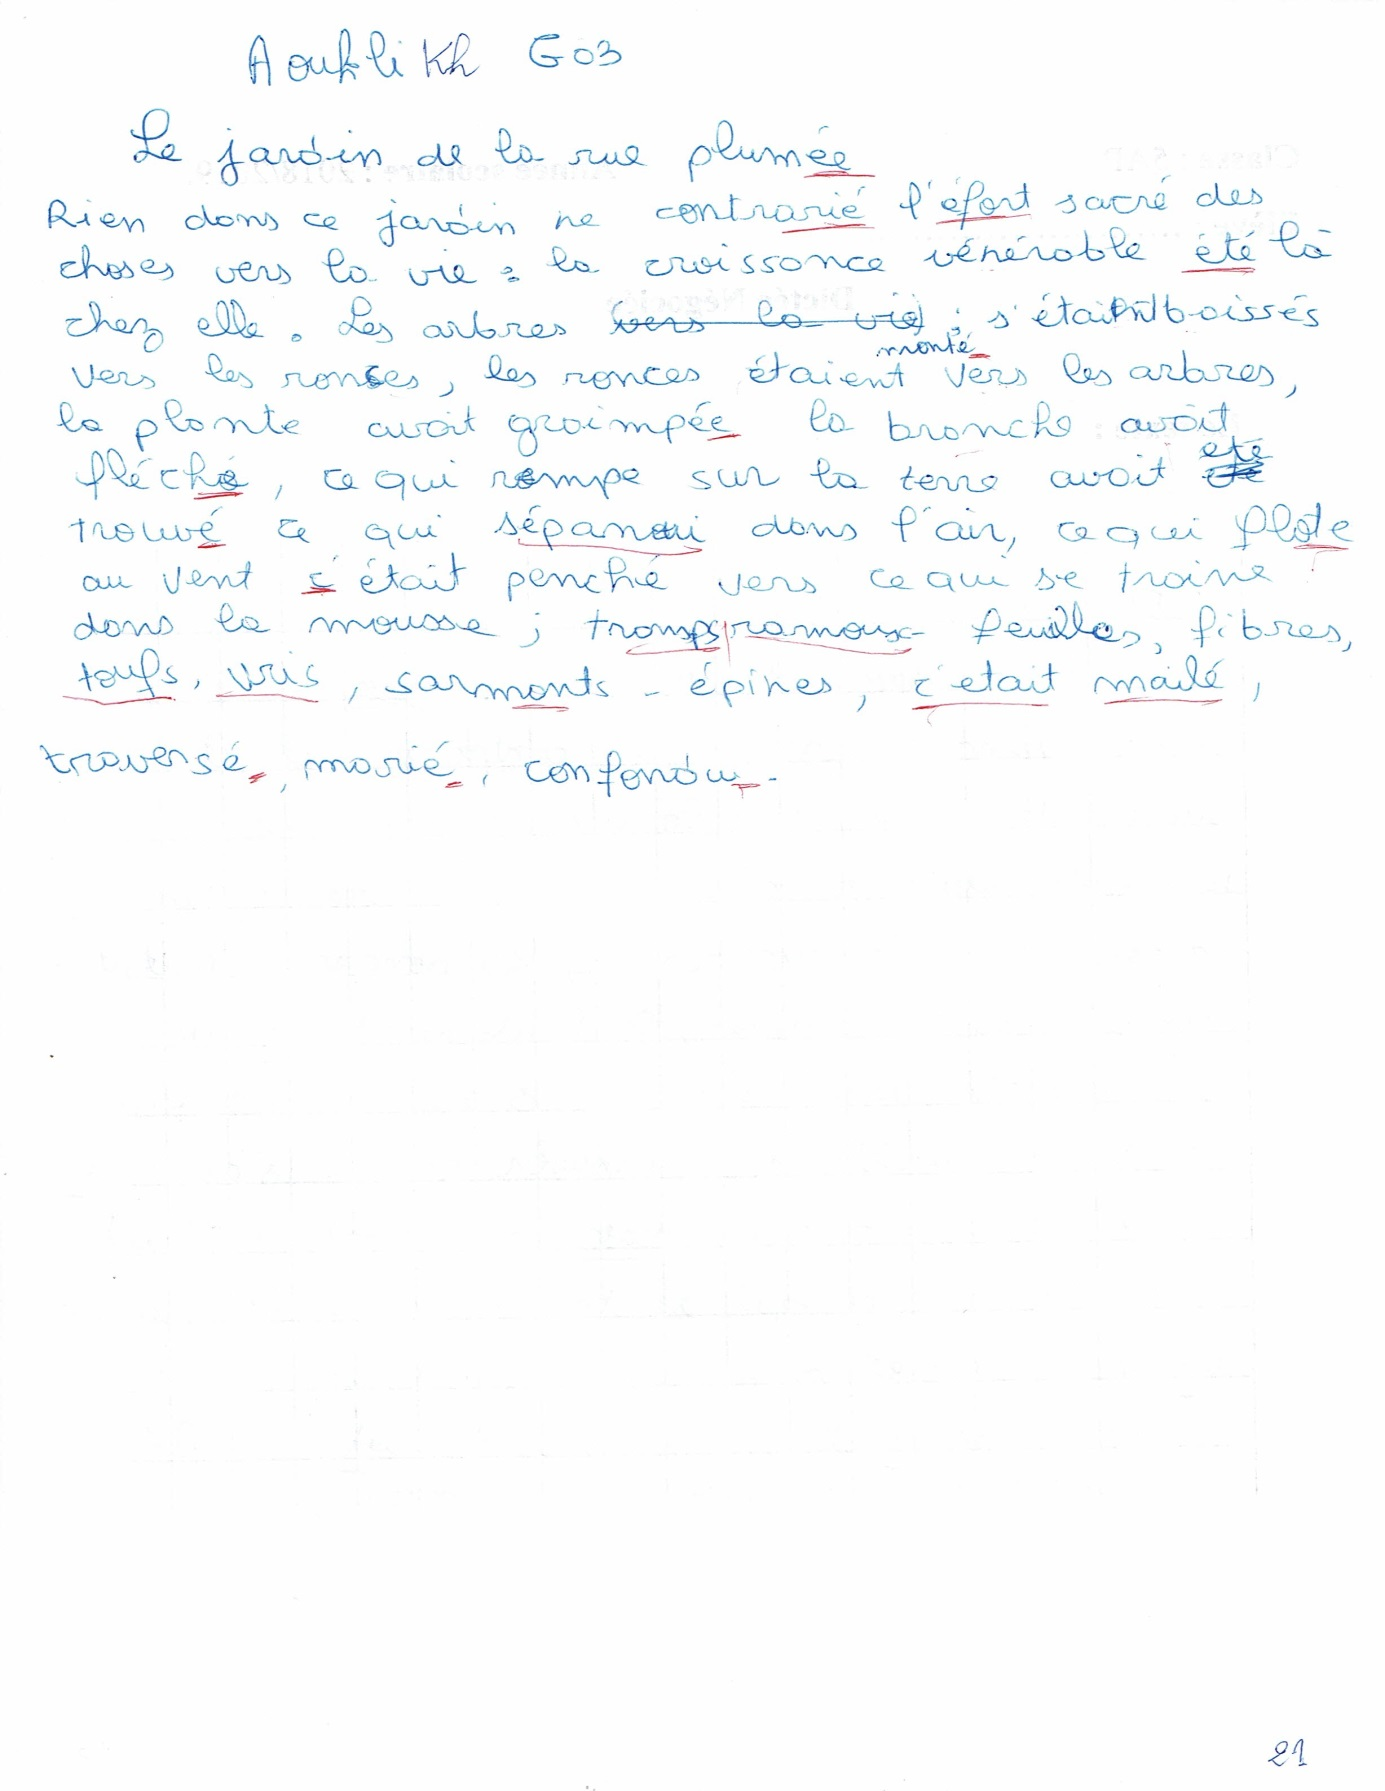 Aoukli Kh G03
Le jardin de la rue plumée
Rien dans ce jardin ne contrarié l'éfort sacré des
choses vers la vie : la croissance vénérable été là
chez elle. Les arbres vers la vie ; s'étaient baissés
vers les ronces, les ronces étaient monté vers les arbres,
la plante avait graimpée la branche avait
fléché, ce qui rampe sur la terre avait eté
trouvé ce qui sépanoui dans l'air, ce qui flote
au vent s'était penché vers ce qui se traine
dans la mousse ; trompsramoux feuilles, fibres,
toufs, vris, sarmants - épines, c'etait mailé,
traversé, marié, confondu.
21